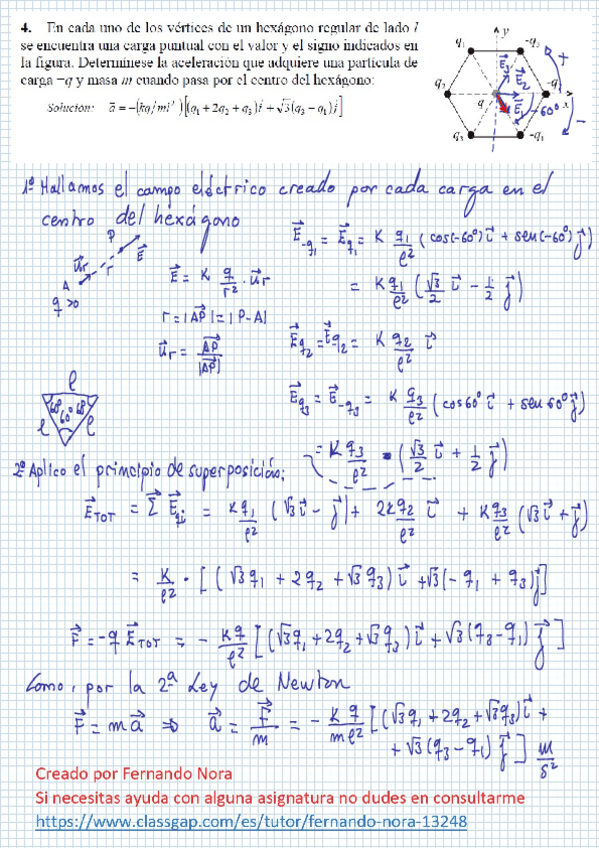 4. En cada uno de los vértices de un hexágono regular de lado l
se encuentra una carga puntual con el valor y el signo indicados en
la figura. Determínese la aceleración que adquiere una partícula de
carga −q y masa m cuando pasa por el centro del hexágono:
Solución: a⃗ = −(kq/ml²)[(q₁ + 2q₂ + q₃)i⃗ + √3(q₃ − q₁)j⃗]
y
q₁
-q₃
q₂
-q₂
q
x
q₃
-q₁
E⃗₃
E⃗₂
E⃗₁
+
-60°
−
1º Hallamos el campo eléctrico creado por cada carga en el
centro del hexágono
A
P
r
u⃗r
E⃗
q>0
E⃗ = K q/r² · u⃗r
r = |AP⃗| = |P-A|
u⃗r = AP⃗/|AP⃗|
E⃗-q₁ = E⃗q₁ = K q₁/l² (cos(-60°) i⃗ + sen(-60°) j⃗)
= K q₁/l² (√3/2 i⃗ - 1/2 j⃗)
E⃗q₂ = E⃗-q₂ = K q₂/l² i⃗
E⃗q₃ = E⃗-q₃ = K q₃/l² (cos 60° i⃗ + sen 60° j⃗)
= K q₃/l² · (√3/2 i⃗ + 1/2 j⃗)
l
60° 60° 60°
l l
2º Aplico el principio de superposición:
E⃗TOT = Σ E⃗qi = Kq₁/l² (√3 i⃗ - j⃗) + 2Kq₂/l² i⃗ + Kq₃/l² (√3 i⃗ + j⃗)
= K/l² · [(√3 q₁ + 2q₂ + √3 q₃) i⃗ + √3(-q₁ + q₃) j⃗]
F⃗ = -q E⃗TOT = - Kq/l² [(√3 q₁ + 2q₂ + √3 q₃) i⃗ + √3 (q₃ - q₁) j⃗]
Como, por la 2ª Ley de Newton
F⃗ = m a⃗ ⇒ a⃗ = F⃗/m = - Kq/ml² [(√3 q₁ + 2q₂ + √3 q₃) i⃗ +
+ √3 (q₃ - q₁) j⃗] m/s²
Creado por Fernando Nora
Si necesitas ayuda con alguna asignatura no dudes en consultarme
https://www.classgap.com/es/tutor/fernando-nora-13248